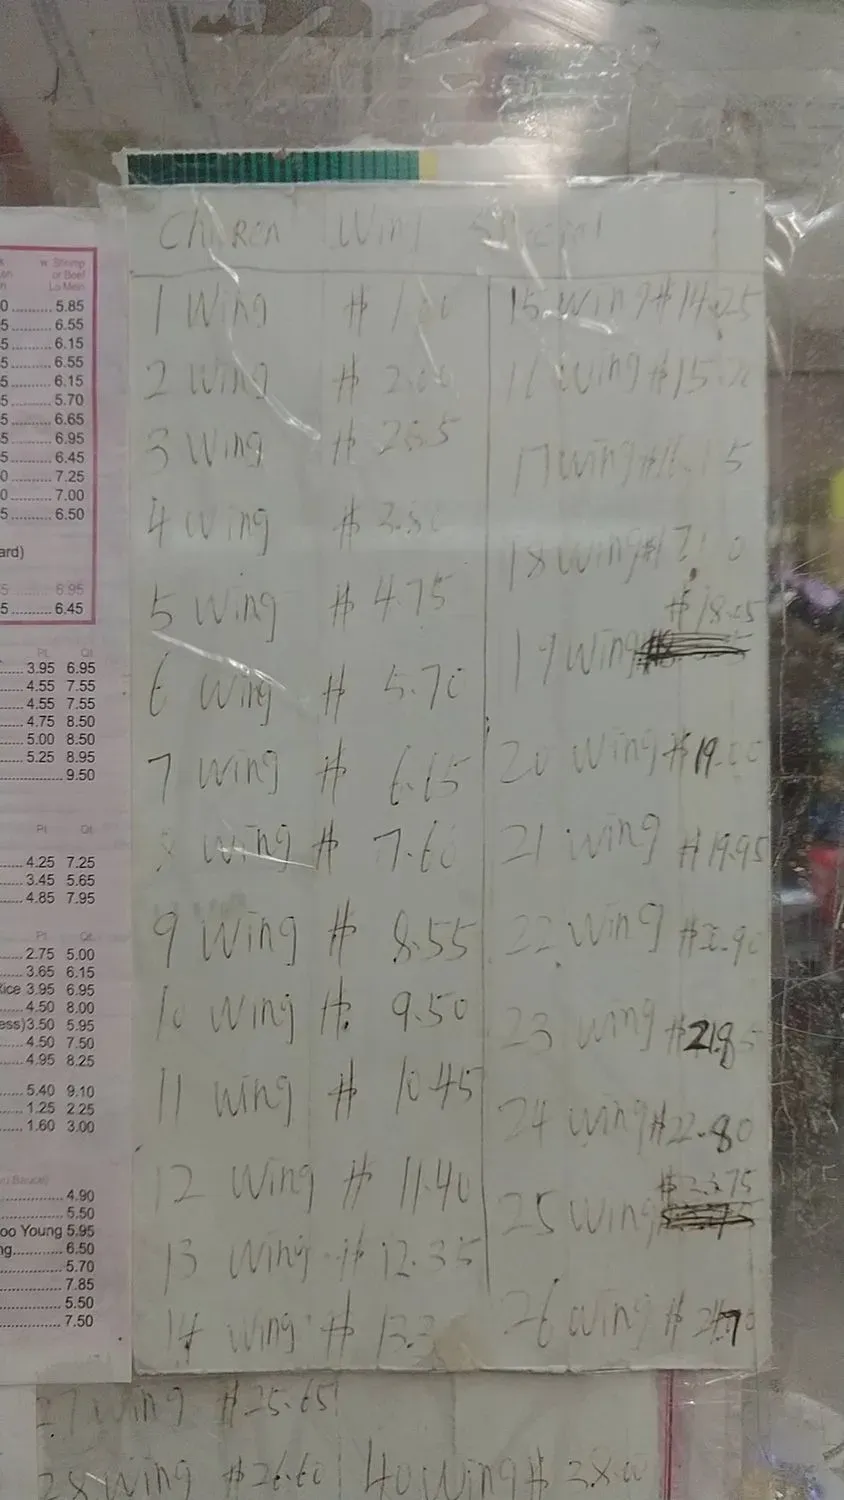 Chicken Wing Special
1 Wing $ 1.00
2 Wing $ 2.00
3 Wing $ 2.85
4 Wing $ 3.80
5 Wing $ 4.75
6 Wing $ 5.70
7 Wing $ 6.65
8 Wing $ 7.60
9 Wing $ 8.55
10 Wing $ 9.50
11 Wing $ 10.45
12 Wing $ 11.40
13 Wing $ 12.35
14 Wing $ 13.3
15 Wing $14.25
16 Wing $15.20
17 Wing $16.15
18 Wing $17.10
19 Wing $18.05
20 Wing $19.00
21 Wing $19.95
22 Wing $20.90
23 Wing $21.85
24 Wing $22.80
25 Wing $23.75
26 Wing $24.70
27 Wing $25.65
28 Wing $26.60
40 Wing $38.00
w. Shrimp
or Beef
Lo Mein
5.85
6.55
6.15
6.55
6.15
5.70
6.65
6.95
6.45
7.25
7.00
6.50
6.95
6.45
Pt. Qt.
3.95 6.95
4.55 7.55
4.55 7.55
4.75 8.50
5.00 8.50
5.25 8.95
9.50
Pt. Qt.
4.25 7.25
3.45 5.65
4.85 7.95
Pt. Qt.
2.75 5.00
3.65 6.15
Rice 3.95 6.95
4.50 8.00
3.50 5.95
4.50 7.50
4.95 8.25
5.40 9.10
1.25 2.25
1.60 3.00
4.90
5.50
Young 5.95
6.50
5.70
7.85
5.50
7.50